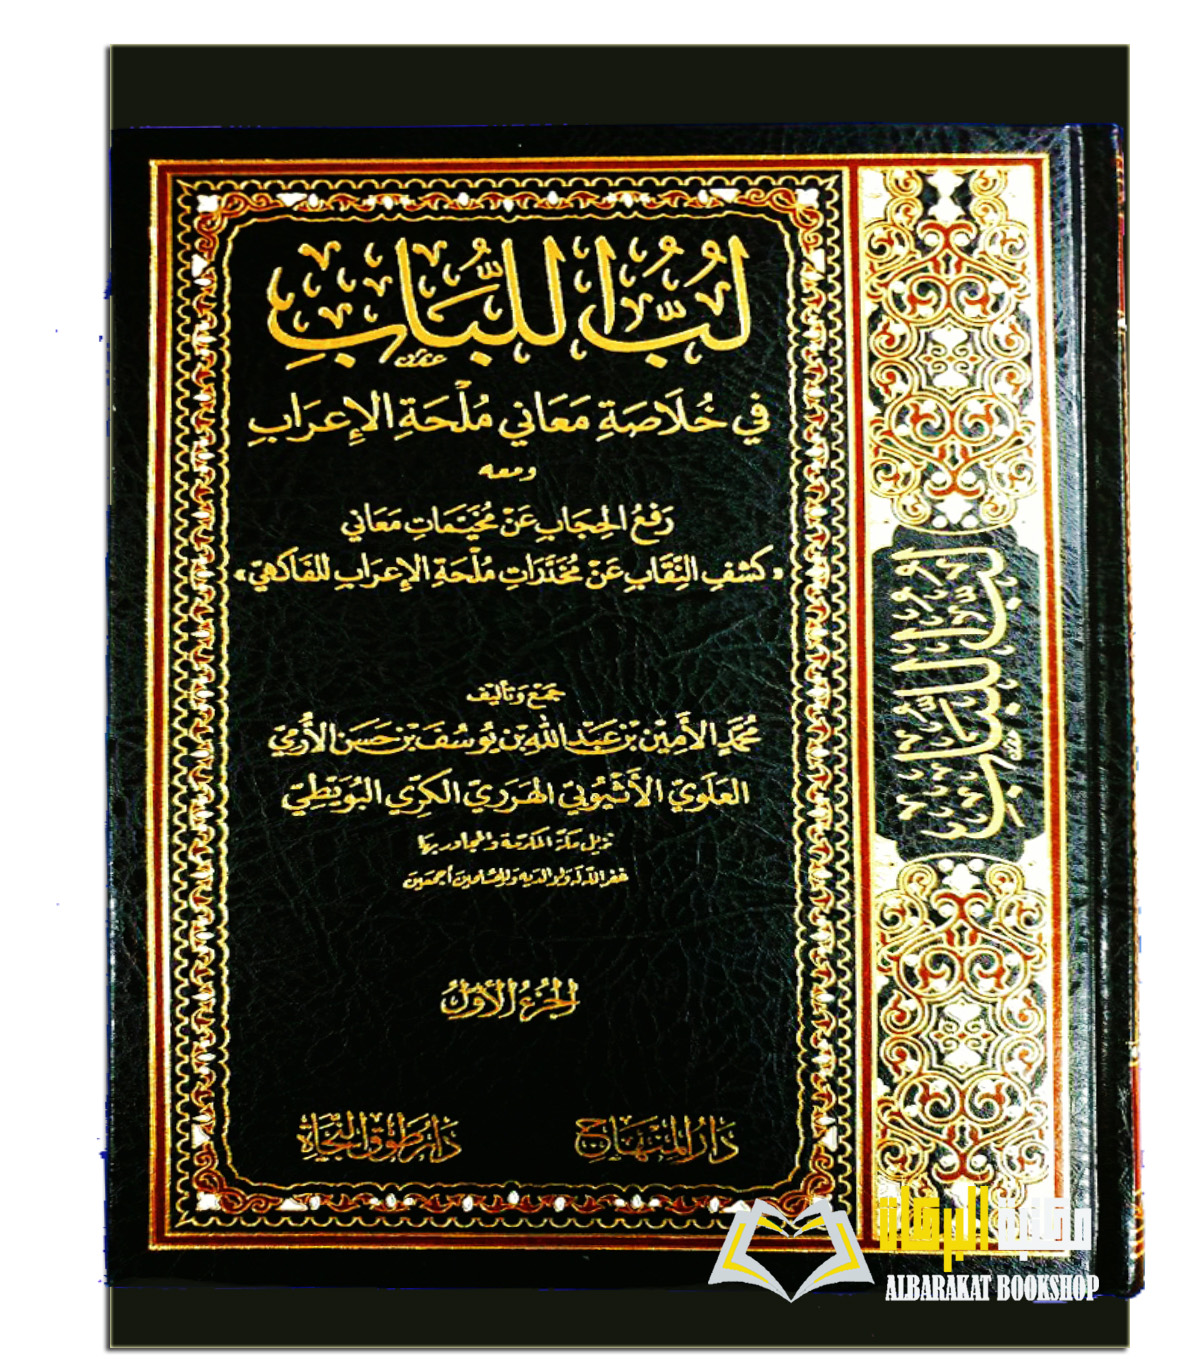 لُبُّ اللُّبَابِ
فِي خُلَاصَةِ مَعَانِي مُلْحَةِ الْإِعرَابِ
ومعه
رَفعُ الحِجَابِ عَنْ مُخَيَّمَاتِ مَعَانِي
«كَشفِ النِّقَابِ عَنْ مُخَدَّرَاتِ مُلْحَةِ الإِعرَابِ للفَاكهيّ»
جمَعْ وَتأليف
مُحَمَّد الأَمِين بْن عَبْد اللهِ بْن يُوسُفَ بْن حَسَن الأُرَمِيّ
العَلَوِيّ الأَثْيُوبيّ الهَرَرِيّ الكَرِّي البُوَيطِيّ
نزيل مكة المكرمة والمجاور بها
غفر الله له ولوالديه وللمسلمين أجمعين
الجُزْءُ الأَوَّلُ
دَارُ المِنْهَاج
دَار طَوْق النَّجَاة
لُبُّ اللُّبَابِ
مكتبة البركات
ALBARAKAT BOOKSHOP